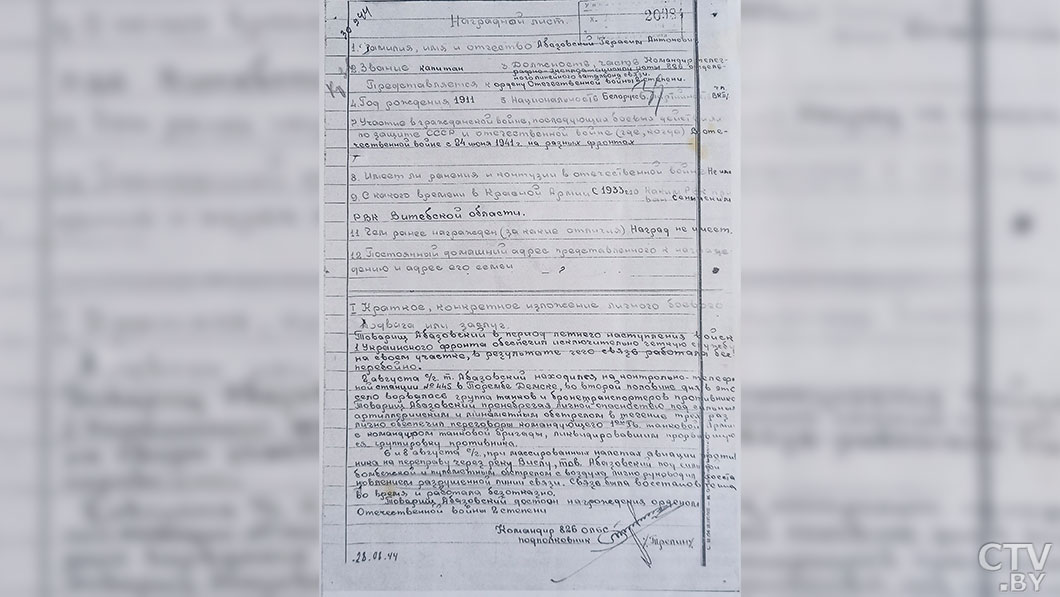 30944
Наградной лист.
20994
1. Фамилия, имя и отчество Абазовский Герасим Антонович
2. Звание капитан 3 Должность, часть Командир телег-
рафно-эксплоатационной роты 826 отделе-
батальона связи.
Представляется к ордену Отечественной войны степени.
4. Год рождения 1911 5 Национальность Белорус
7 Участие в гражданской войне, последующих боевых действиях
по защите СССР и отечественной войне (где, когда) В оте-
чественной войне с 24 июня 1941 г на разных фронтах
8. Имеет ли ранения и контузии в отечественной войне Не им
9. С какого времени в Красной Армии С 1933 10 Каким РВК
ван Сенненским
РВК Витебской области.
11 Чем ранее награжден (за какие отличия) Наград не имеет.
12 Постоянный домашний адрес представленного к награж
дению и адрес его семьи
I Краткое, конкретное изложение личного боевого
подвига или заслуг.
Товарищ Абазовский в период летнего наступления войск
1 Украинского фронта обеспечил исключительно четкую службу
на своем участке, в результате чего связь работала без
перебойно.
августа с/г. т. Абазовский находился, на контрольно-телеф
ной станции №445 в Поренбе Демске, во второй половине дня в это
село ворвалась группа танков и бронетранспортеров противника
Товарищ Абазовский пренебрегая личной опасностью под сильным
артиллерийским и минометным обстрелом в течение трех раз
лично обеспечил переговоры командующего 1ой Гв. танковой Арми
с командиром танковой бригады, ликвидировавшим прорвавшую
ся группировку противника.
6 и 8 августа с/г, при массированных налетах авиации против
ника на переправу через реку Вислу, тов. Абазовский под сильной
бомбежкой и пулеметным обстрелом с воздуха лично руководил восста
новлением разрушенной линии связи. Связь была восстановлена
во время и работала безотказно.
Товарищ Абазовский достоин награждения орденом
Отечественной войны 2 степени
Командир 826 ОПБС
подполковник
28.08.44
CTV
.BY